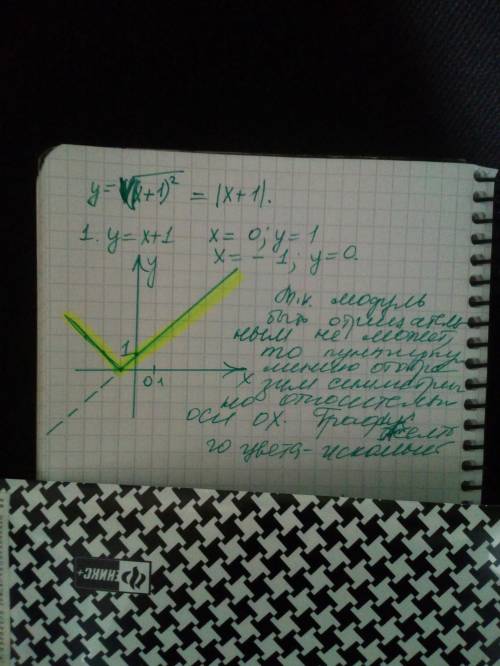 y = √(x+1)² = |x+1|.
1. y = x+1 x = 0; y = 1
x = - 1; y = 0.
y
Т.к. модуль
быть отрицатель
ным не может
то пунктирну
линию отобра
X зим симметрич
но относительн
оси ОХ. График
желто
го цвета - искомый
1
0 1
ЕНИКС+